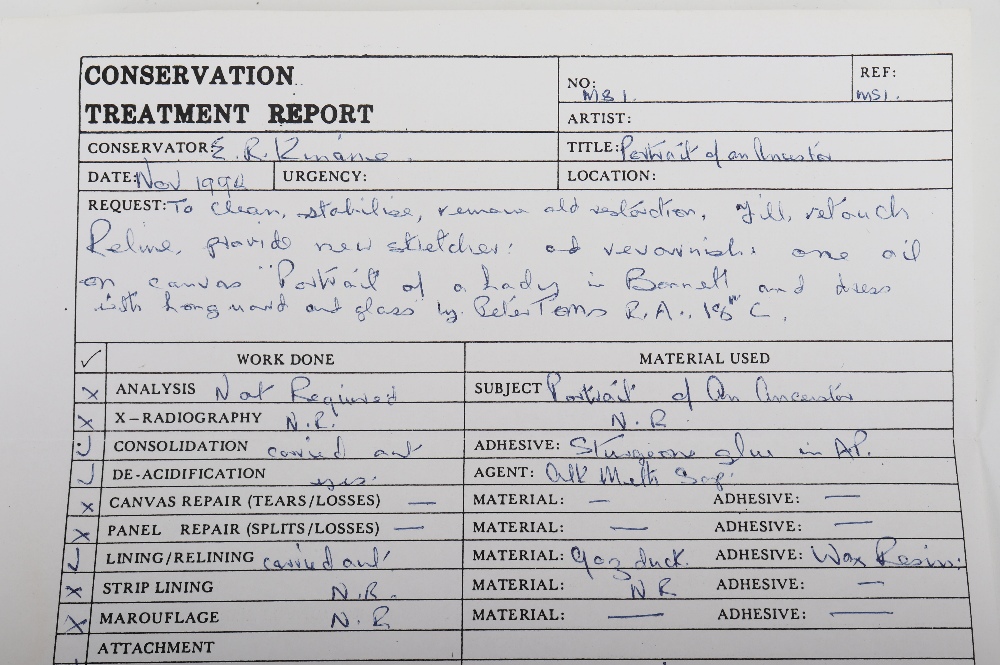 CONSERVATION
TREATMENT REPORT
NO: MS1.
REF: MS1.
ARTIST:
CONSERVATOR: E. R.
TITLE: Portrait of an Ancestor
DATE: Nov 1994
URGENCY:
LOCATION:
REQUEST: To clean, stabilise, remove old restoration, fill, retouch
Reline, provide new stretcher: and revarnish: one oil
on canvas "Portrait of a Lady in Bonnett and dress
with Longuard and glass" by Peter Toms R.A.. 18th C.
✓ WORK DONE MATERIAL USED
x ANALYSIS Not Required SUBJECT Portrait of An Ancestor
x X-RADIOGRAPHY N.R. N.R
✓ CONSOLIDATION carried out ADHESIVE: Sturgeone glue in
✓ DE-ACIDIFICATION yes. AGENT:
x CANVAS REPAIR (TEARS/LOSSES) — MATERIAL: — ADHESIVE: —
x PANEL REPAIR (SPLITS/LOSSES) — MATERIAL: — ADHESIVE: —
✓ LINING/RELINING carried out MATERIAL: 9oz duck. ADHESIVE: Wax Resin:
x STRIP LINING N.R. MATERIAL: NR ADHESIVE: —
x MAROUFLAGE N.R MATERIAL: — ADHESIVE: —
ATTACHMENT